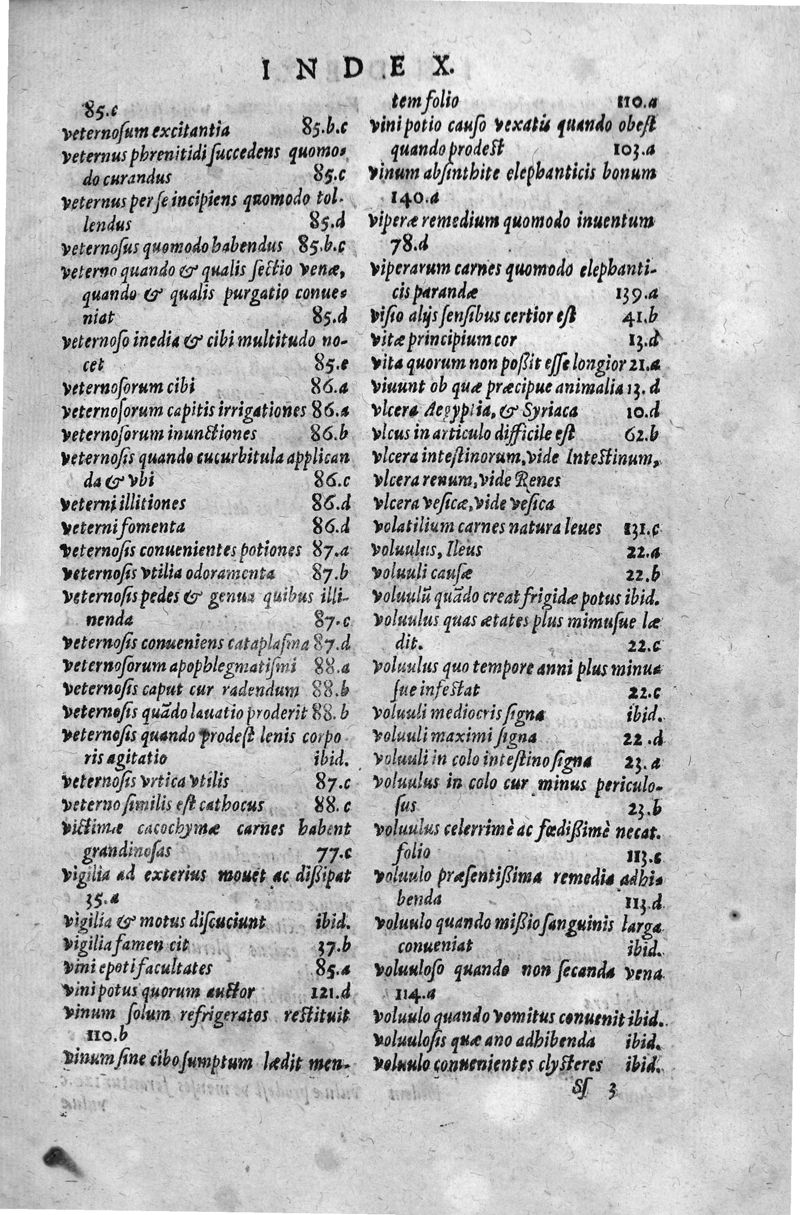 INDEX.
85.c
veternosum excitantia 85.b.c
veternus phrenitidi succedens quomo-
do curandus 85.c
veternus per se incipiens quomodo tol-
lendus 85.d
veternosus quomodo habendus 85.b.c
veterno quando & qualis sectio venæ,
quando & qualis purgatio conue-
niat 85.d
veternoso inedia & cibi multitudo no-
cet 85.e
veternosorum cibi 86.a
veternosorum capitis irrigationes 86.a
veternosorum inunctiones 86.b
veternosis quando cucurbitula applican
da & vbi 86.c
veterni illitiones 86.d
veterni fomenta 86.d
veternosis conuenientes potiones 87.a
veternosis vtilia odoramenta 87.b
veternosis pedes & genua quibus illi-
nenda 87.c
veternosis conueniens cataplasma 87.d
veternosorum apophlegmatismi 88.a
veternosis caput cur radendum 88.b
veternosis quãdo lauatio proderit 88.b
veternosis quando prodest lenis corpo
ris agitatio ibid.
veternosis vrtica vtilis 87.c
veterno similis est cathocus 88.c
victimæ cacochymæ carnes habent
grandinosas 77.c
vigilia ad exterius mouet ac dißipat
35.a
vigilia & motus discuciunt ibid.
vigilia famen cit 37.b
vini epoti facultates 85.a
vini potus quorum auctor 121.d
vinum solum refrigeratos restituit
110.b
vinum sine cibo sumptum lædit men-
tem folio 110.a
vini potio causo vexatis quando obest
quando prodest 103.a
vinum absinthite elephanticis bonum
140.a
viperæ remedium quomodo inuentum
78.d
viperarum carnes quomodo elephanti-
cis parandæ 139.a
visio alijs sensibus certior est 41.b
vitæ principium cor 13.d
vita quorum non poßit esse longior 21.a
viuunt ob quæ præcipue animalia 13.d
vlcera Aegyptia, & Syriaca 10.d
vlcus in articulo difficile est 62.b
vlcera intestinorum, vide Intestinum,
vlcera renum, vide Renes
vlcera vesicæ, vide vesica
volatilium carnes natura leues 131.c
voluulus, Ileus 22.a
voluuli causæ 22.b
voluulũ quãdo creat frigidæ potus ibid.
voluulus quas ætates plus mimusue læ
dit. 22.c
voluulus quo tempore anni plus minus
sue infestat 22.c
voluuli mediocris signa ibid.
voluuli maximi signa 22.d
voluuli in colo intestino signa 23.a
voluulus in colo cur minus periculo-
sus 23.b
voluulus celerrimè ac fœdißimè necat.
folio 113.c
voluulo præsentißima remedia adhi
benda 113.d
voluulo quando mißio sanguinis larga
conueniat ibid.
voluuloso quando non secanda vena
114.a
voluulo quando vomitus conuenit ibid.
voluulosis quæ ano adhibenda ibid.
voluulo conuenientes clysteres ibid.
Sſ 3